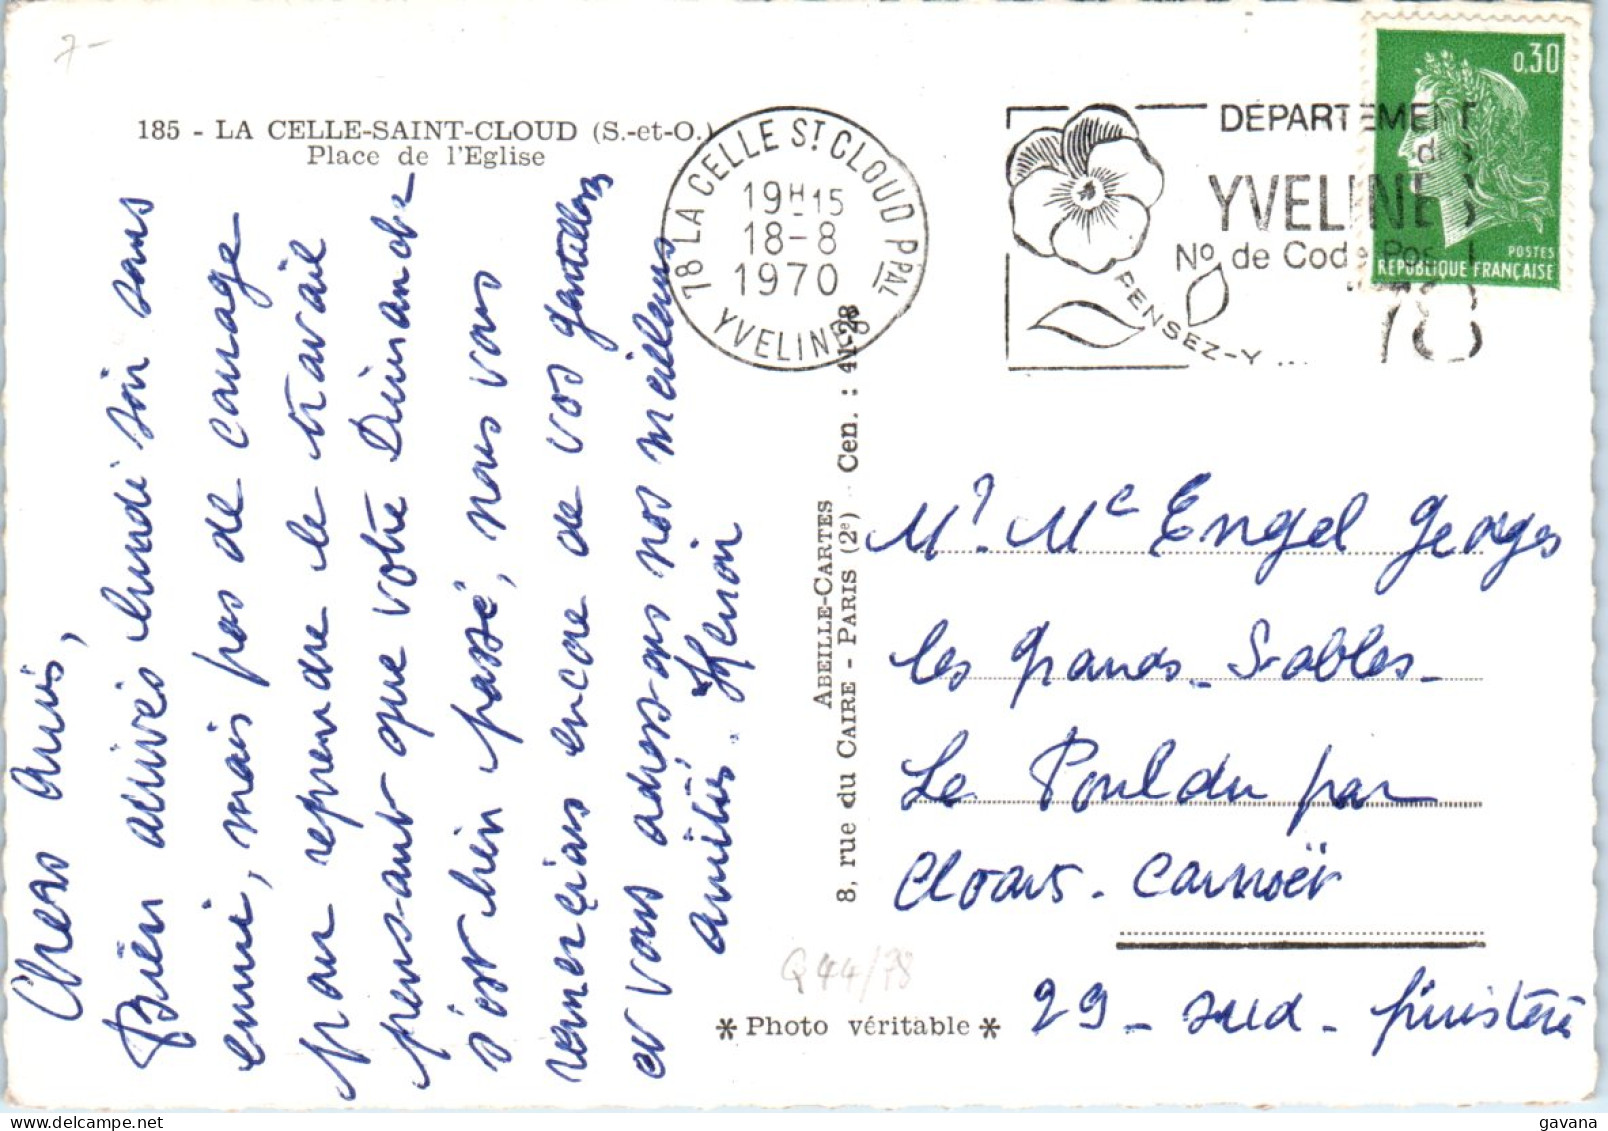 7-
185 - LA CELLE-SAINT-CLOUD (S.-et-O.)
Place de l'Eglise
78 LA CELLE ST CLOUD PPAL
19H-15
18-8
1970
YVELINES
DÉPARTEMENT
des
YVELINES
No de Code Postal
78
PENSEZ-Y ....
0,30
POSTES
REPUBLIQUE FRANÇAISE
Chers Amis,
Bien arrivés lundi soir sans
ennui, mais pas de courage
pour reprendre le travail
pensant que votre Dimanche
s'est bien passé, nous vous
remercions encore de vos gentillesses
et vous adressons nos meilleures
amitiés.
ABEILLE-CARTES
8, rue du CAIRE - PARIS (2e) Cen. : 41-28
Mr. Me Engel Georges
les grands Sables
Le Pouldu par
Cloars-Carnoër
29 - sud - finistère
Q44/78
* Photo véritable *
gavana